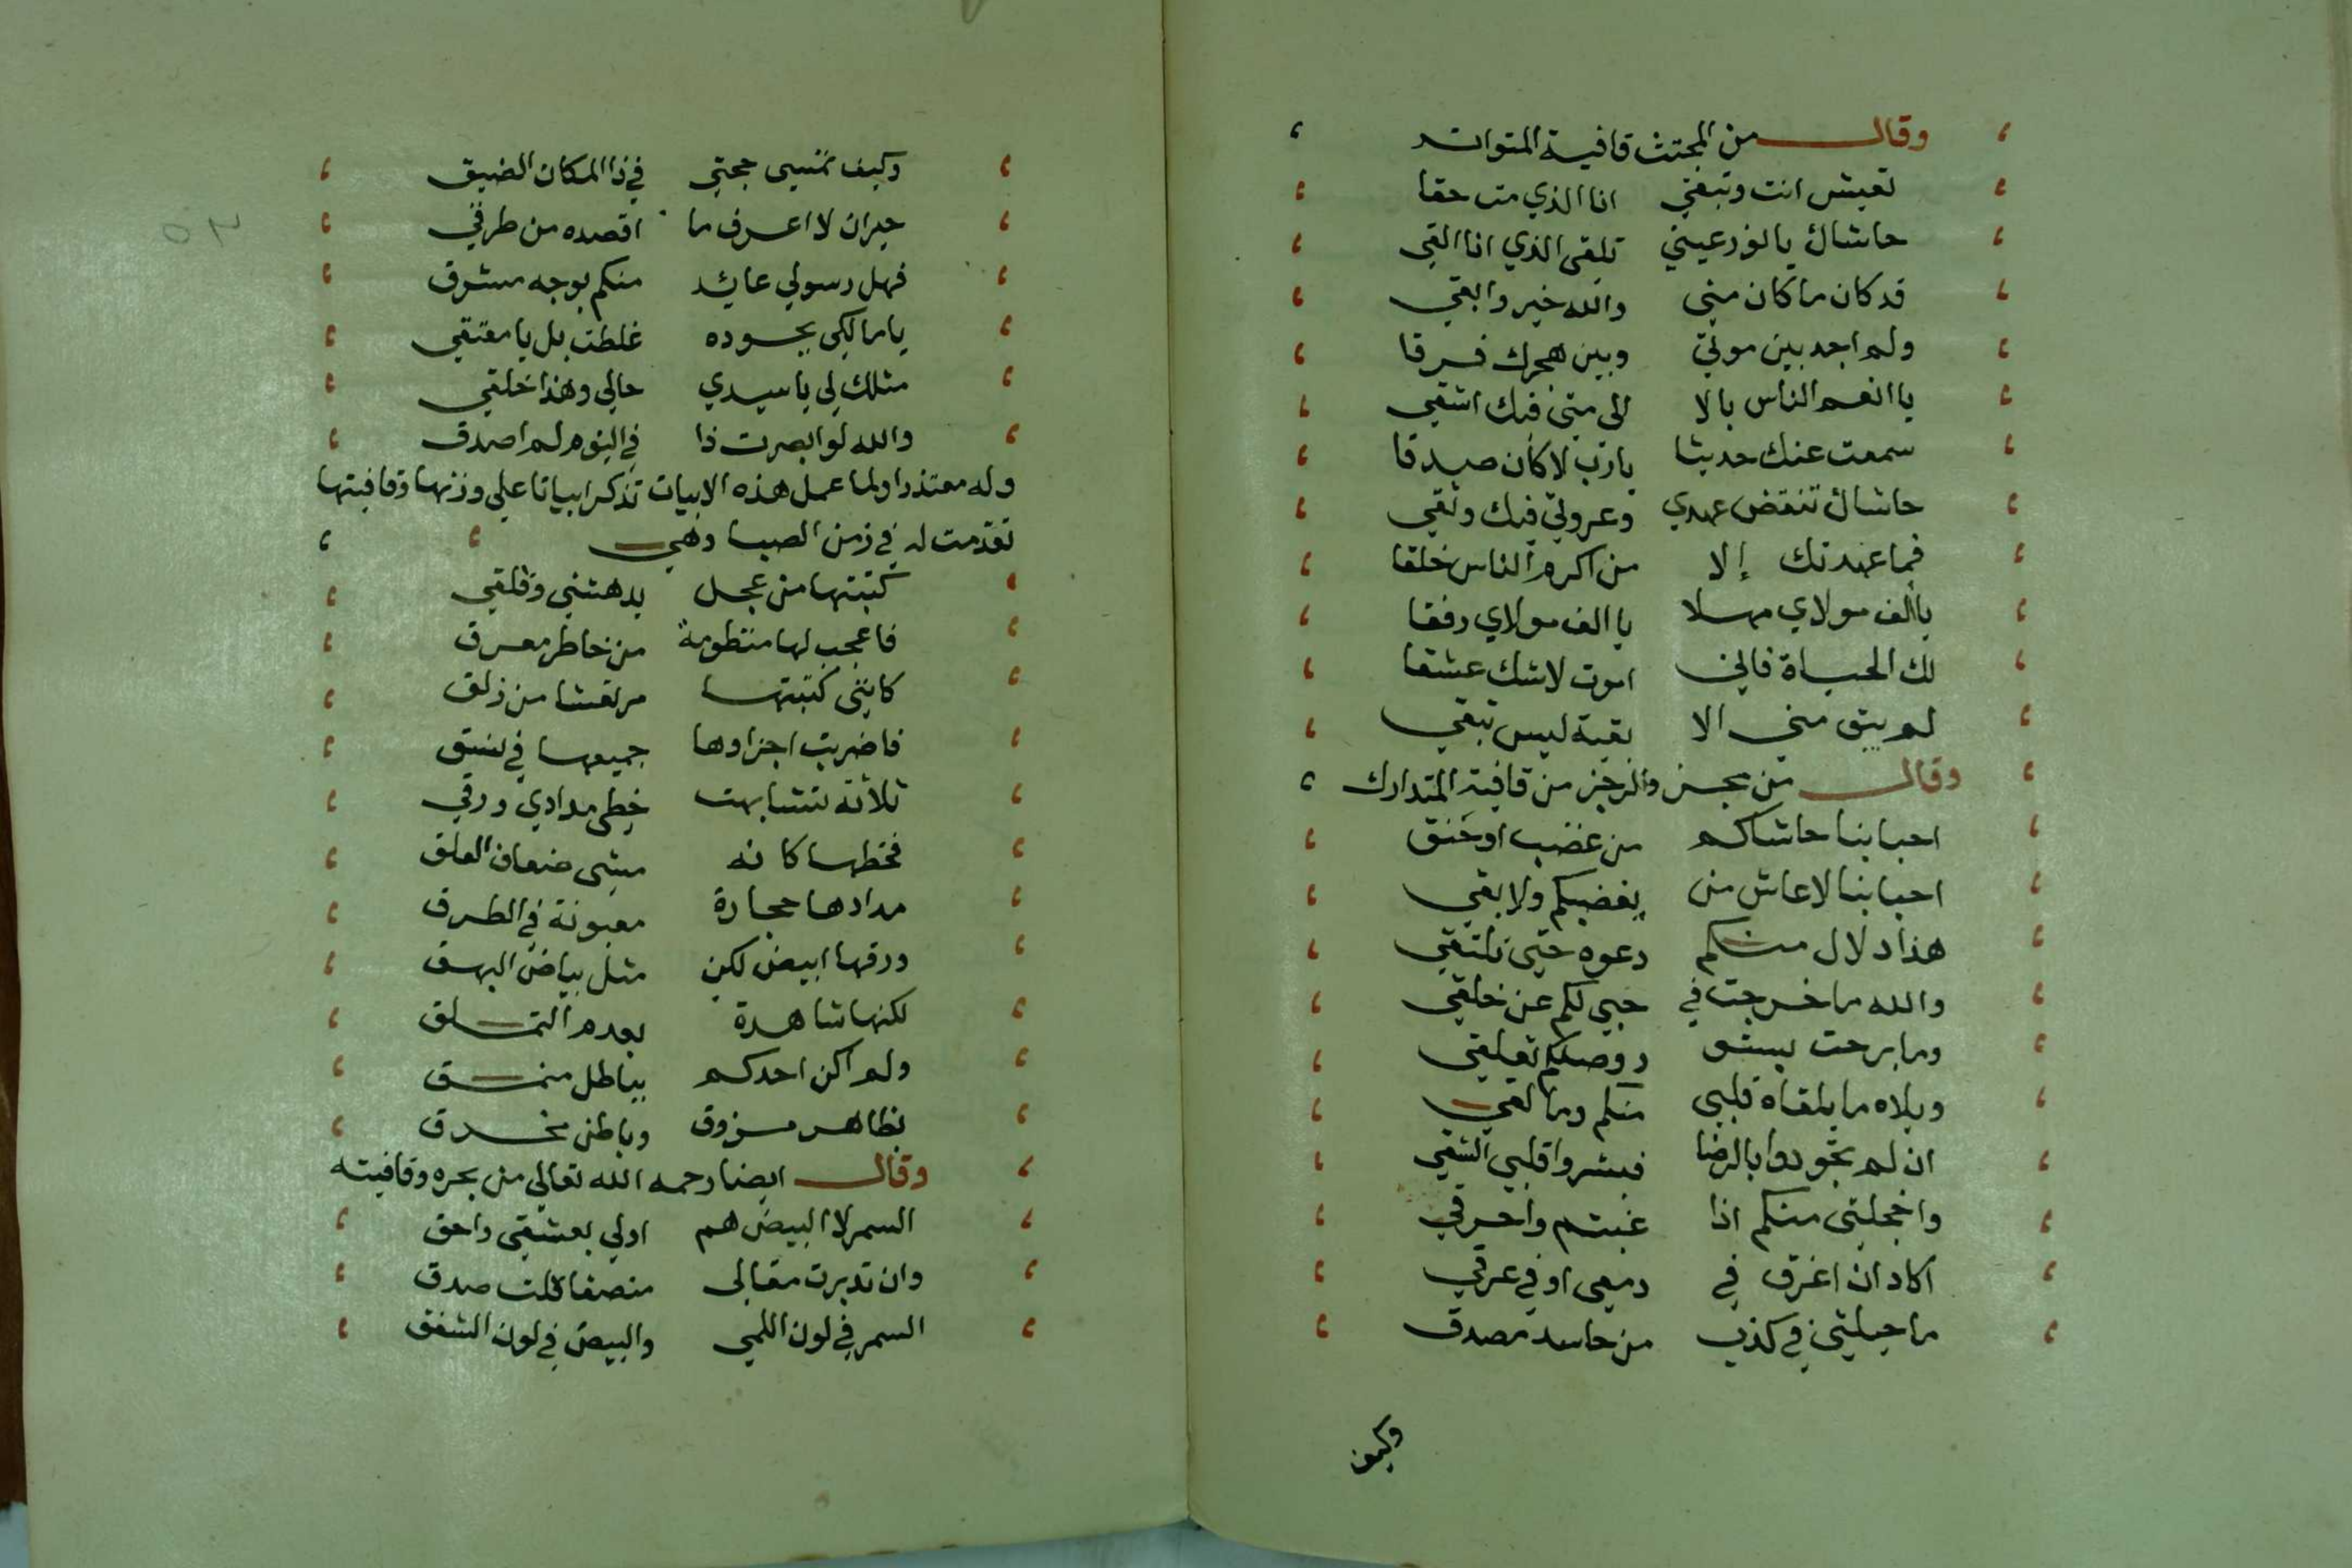 وقال من المجتث قافية المتواتر
تعيش انت وتبقي انا الذي مت حقا
حاشاك يا نور عيني تلقى الذي انا القى
قد كان ما كان مني والله خير وابقي
ولم اجد بين موتي وبين هجرك فرقا
يا انعم الناس بالا الى متى فيك اشقي
سمعت عنك حديثا يا رب لا كان صدقا
حاشاك تنقض عهدي وعروتي فيك وثقي
فما عهدتك إلا من اكرم الناس خلقا
يا ألف مولاي مهلا يا الف مولاي رفقا
لك الحياة فاني اموت لا شك عشقا
لم يبق مني الا بقية ليس تبقي
وقال من بحر والرجز من قافية المتدارك
احبابنا حاشاكم من غضب او حنق
احبابنا لا عاش من يغضبكم ولا بقي
هذا دلال منكم دعوه حتى نلتقي
والله ما خرجت في حبي لكم عن خلقي
وما برحت بستو ر وصلكم تعلقي
ويلاه ما يلقاه قلبي منكم وما لقي
ان لم تجودوا بالرضا فبشروا قلبي الشقي
واخجلتي منكم اذا عتبتم واحرقي
اكاد ان اغرق في دمعي او في عرقي
ما حيلتي في كذب من حاسد مصدق
وكيف
٥٣
وكيف تمسي حجتي في ذا المكان الضيق
حيران لا اعرف ما اقصده من طرقي
فهل رسولي عايد منكم بوجه مشرق
يا مالكي بجوده غلطت بل يا معتقي
مثلك لي يا سيدي حالي وهذا خلقي
والله لو ابصرت ذا في النوم لم اصدق
وله معتذرا ولما عمل هذه الابيات تذكر ابياتا علي وزنها وقافيتها
تقدمت له في زمن الصبا وهي
كتبتها من عجل بدهشتي وقلقي
فاعجب لها منظومة من خاطر معرق
كانني كتبتها مرتعشا من زلق
فاضربت اجزاوها جميعها في نسق
ثلاثة تشابهت خطى مدادي ورقي
فخطها كانه مشى ضعاف العلق
مدادها حجارة معبونة في الطرق
ورقها ابيض لكن مثل بياض البهق
لكنها شاهدة بعدم التملق
ولم اكن احدكم بباطل منمق
بظاهر مزوق وباطن مخرق
وقال ايضا رحمه الله تعالي من بحره وقافيته
السمر لا البيض هم اولي بعشقي واحق
وان تدبرت مقالى منصفا قلت صدق
السمر في لون اللمي والبيض في لون الشفق